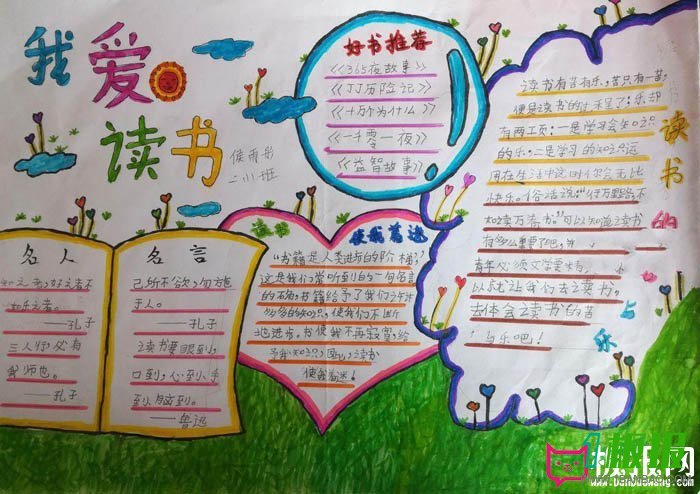 我爱
读书
侯雨彤
二小班
好书推荐
《365夜故事》
《JJ历险记》
《十万个为什么》
《一千零一夜》
《益智故事》
名人
知之者,好之者不
如乐之者。
——孔子
三人行必有
我师也。
——孔子
名言
己所不欲,勿施
于人。
——孔子
读书要眼到,
口到,心到,手
到,脑到。
——鲁迅
读书使我着迷
"书籍是人类进步的阶梯"
这是我们常听到的一句名言
的石
书籍给予了我们许许
多多的知识,使我们不断
地进步。书使我不再寂寞,给
予我知识,因此,读书
使我着迷!
读书的苦与乐
读书有苦有乐,苦只有一苦,
便是读书的时
乐却
有两工页:一是学习会知识
的乐,二是学习的知识运
用在生活中这时你会无比
快乐。俗话说:"行万里路,不
如读万卷书。"可以知道读书
有多么重要了吧。
青年必须文学
以
就让我们去读书。
去体会读书的苦
与乐吧!